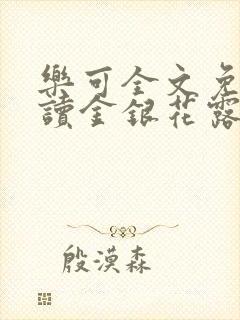 樂可全文免
讀金銀花露
殷漠森